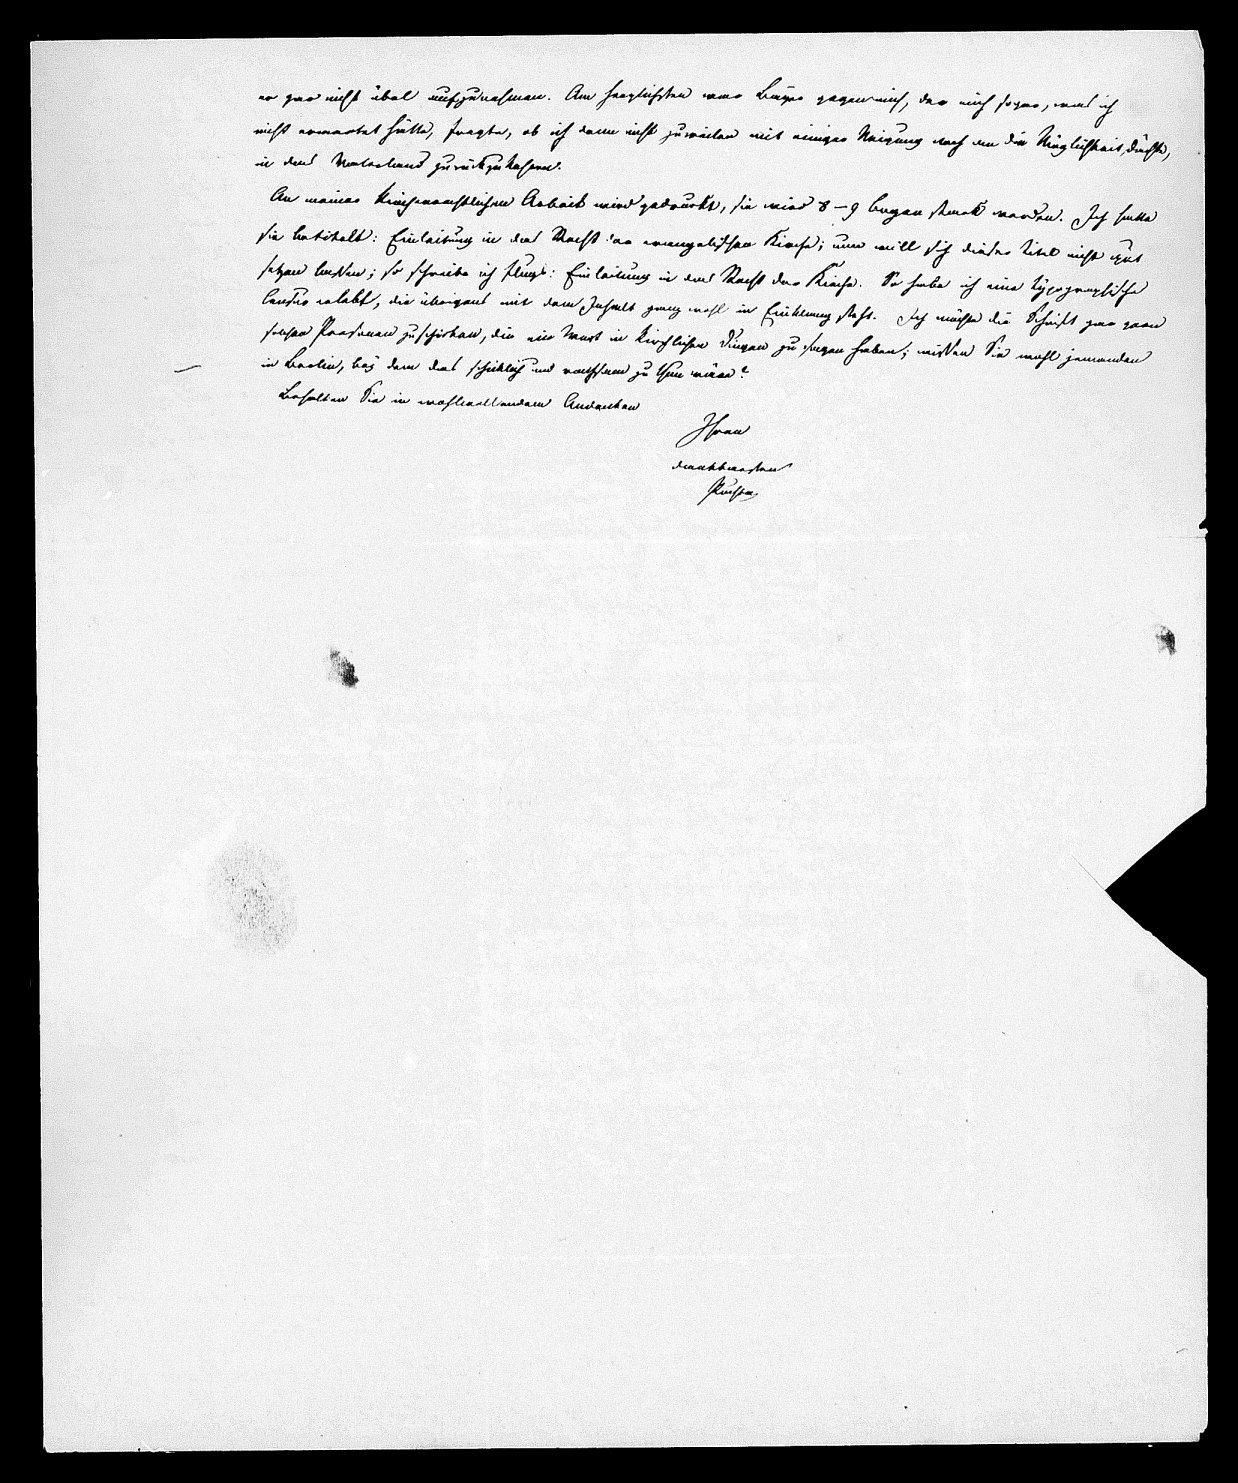 er gar nicht übel aufzunehmen. Am herzlichsten war Bayer gegen mich, der mich sogar, was ich
nicht erwartet hätte, fragte, ob ich denn nicht zuweilen mit einiger Neigung noch an die Möglichkeit dächte,
in das Vaterland zurückzukehren.
An meiner kirchenrechtlichen Arbeit wird gedruckt, sie wird 8–9 Bogen stark werden. Ich hatte
sie betitelt: Einleitung in das Recht der evangelischen Kirche; nun will sich dieser Titel nicht gut
setzen lassen; so schreibe ich flugs: Einleitung in das Recht der Kirche. So habe ich eine typographische
Censur erlebt, die übrigens mit dem Inhalt ganz wohl in Einklang steht. Ich möchte die Schrift gar gern
solchen Personen zuschicken, die ein Wort in kirchlichen Dingen zu sagen haben; wissen Sie wohl jemanden
in Berlin, bey dem das schicklich und rathsam zu thun wäre?
Behalten Sie in wohlwollendem Andenken
Ihren
dankbarsten
Puchta